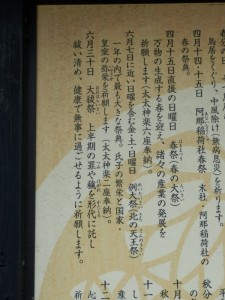 鳥居をくぐり、中風除け(無病息災)を祈ります。
四月十四・十五日 阿那稲荷社春祭 末社・阿那稲荷社の
春の祭典。
四月十五日直後の日曜日 春祭(春の大祭)
万物の生成する春を迎え、諸々の産業の発展を
祈願します(太太神楽六座奉納)。
六月七日に近い日曜を含む金・土・日曜日 例大祭(北の天王祭)
一年の内で最も大きな祭典。氏子の繁栄と国家・
皇室の弥栄を祈願します(太太神楽二座奉納)。
六月三十日 大祓祭 上半期の罪や穢を形代に託し
祓い清め、健康で無事に過ごせるように祈願します。
秋分
十月
十一
産
十二